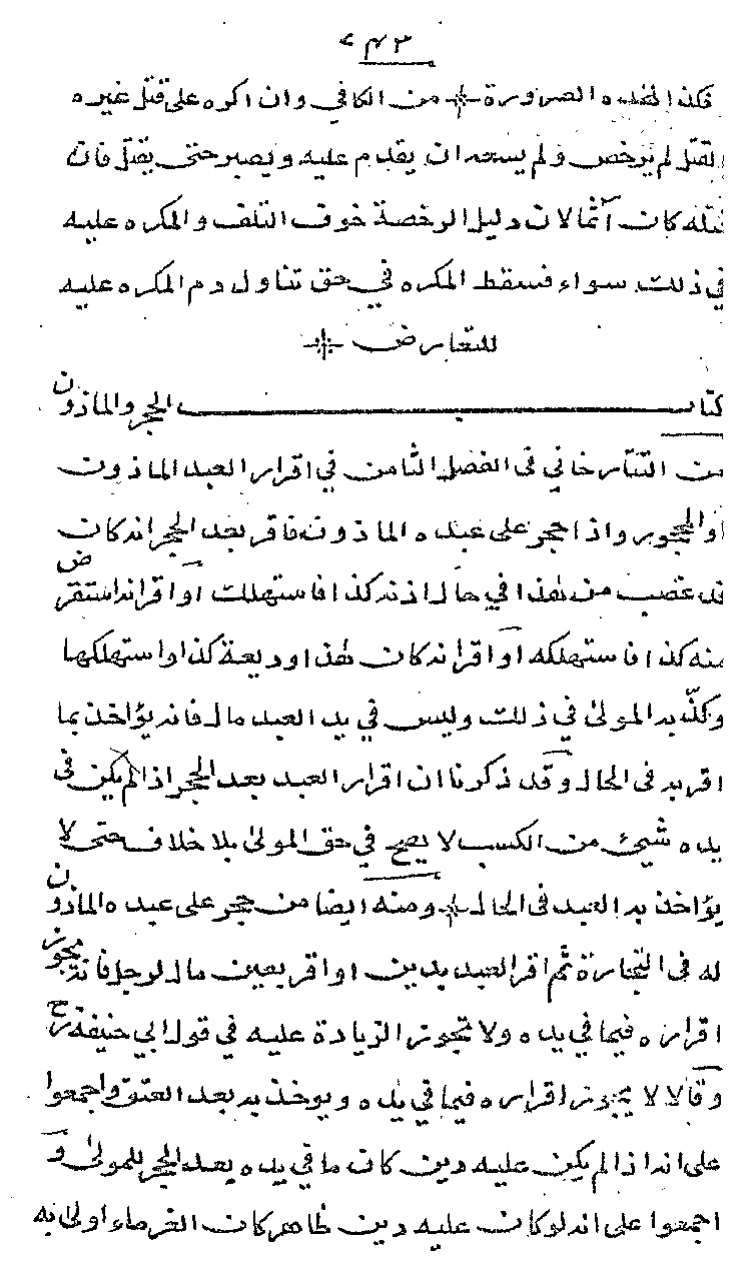 ٢٤٣
فكذا لهذه الضرورة ✢ من الكافي وان اكره على قتل غيره
لقتل لم يرخص ولم يسعه ان يقدم عليه ويصبر حتى يقتل فان
قتله كان آثما لان دليل الرخصة خوف التلف والمكره عليه
في ذلك سواء فسقط المكره في حق تناول دم المكره عليه
للتعارض ✢
كتاب الحجر والماذون
من التتارخاني في الفصل الثامن في اقرار العبد الماذون
او المحجور واذا حجر على عبده الماذون فاقر بعد الحجر انه كان
قد غصب من هذا في حال اذنه كذا فاستهلك او اقر انه استقرض
منه كذا فاستهلكه او اقر انه كان لهذا وديعة كذا واستهلكها
وكذّبه المولى في ذلك وليس في يد العبد مال فانه يؤاخذ بما
اقر به في الحال وقد ذكرنا ان اقرار العبد بعد الحجر اذا لم يكن في
يده شيئ من الكسب لا يصح في حق المولى بلا خلاف حتى لا
يؤاخذ به العبد في الحال ✢ ومنه ايضا من حجر على عبده الماذون
له في التجارة ثم اقر العبد بدين او اقر بعين مال لرجل فانه يجوز
اقراره فيما في يده ولا تجوز الزيادة عليه في قول ابي حنيفة رح
وقالا لا يجوز اقراره فيما في يده ويوخذ به بعد العتق واجمعوا
على انه اذا لم يكن عليه دين كان ما في يده بعد الحجر للمولى و
اجمعوا على انه لو كان عليه دين ظاهر كان الغرماء اولى به